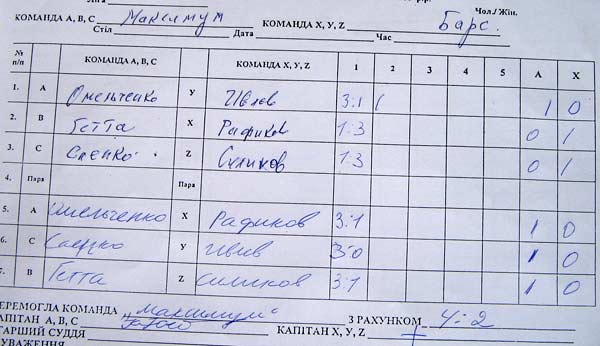 Чол./Жін.
КОМАНДА А, В, С Максимум КОМАНДА X, Y, Z Барс.
Стіл Дата Час
№ п/п КОМАНДА А, В, С КОМАНДА X, Y, Z 1 2 3 4 5 А Х
1. А Омельченко У Ивлев 3:1 1 0
2. В Гетта Х Рафиков 1:3 0 1
3. С Сленко Z Силиков 1:3 0 1
4. Пара Пара
5. А Омельченко Х Рафиков 3:1 1 0
6. С У Ивлев 3:0 1 0
7. В Гетта Z Силиков 3:1 1 0
ЕРЕМОГЛА КОМАНДА „Максимум" З РАХУНКОМ 4:2
КАПІТАН А, В, С КАПІТАН X, Y, Z
ТАРШИЙ СУДДЯ
УВАЖЕННЯ